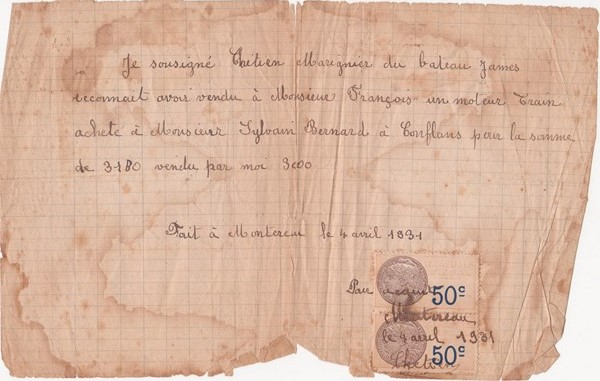 Je sousigné Chétien Marignier du bateau James
reconnait avoir vendu à Monsieur François un moteur Train
acheté à Monsieur Sylvain Bernard à Conflans pour la somme
de 3180 vendu par moi 3000
Fait à Montereau le 4 avril 1931
Par acquit
50c
Montereau
le 4 avril 1931
50c